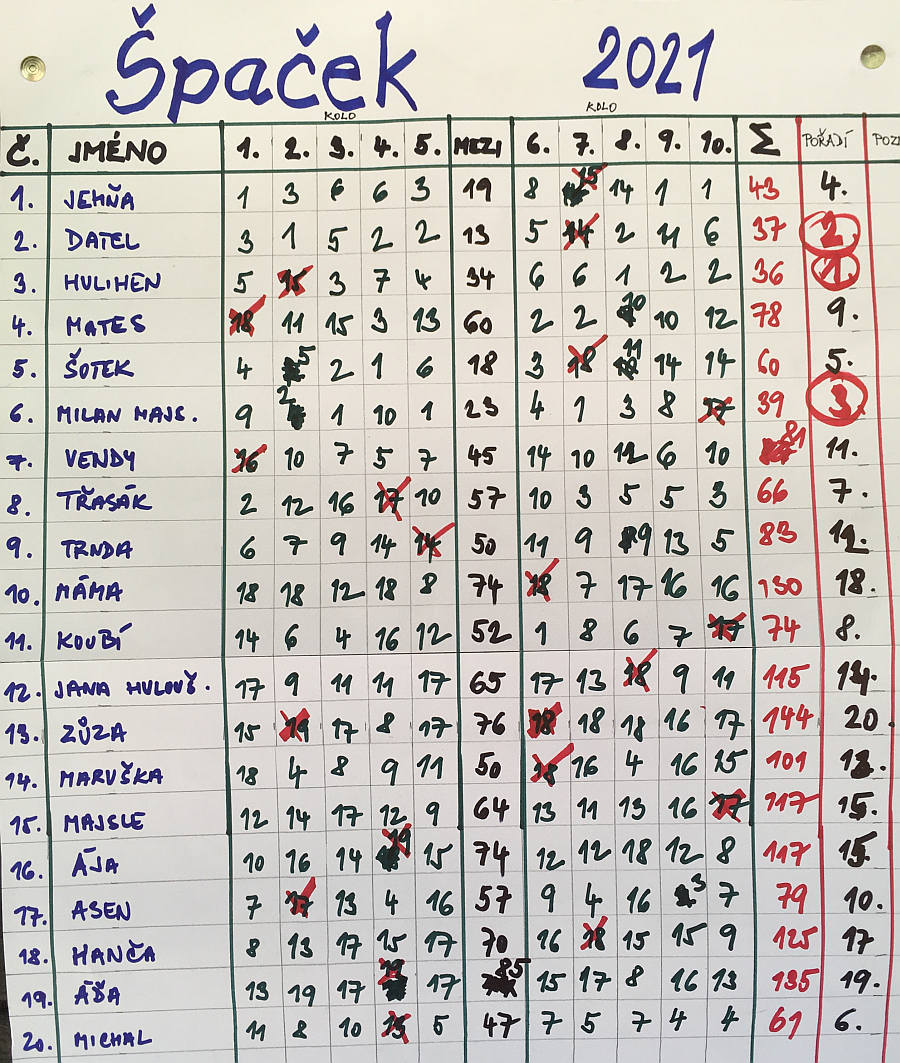 Špaček 2021
KOLO KOLO
Č. JMÉNO 1. 2. 3. 4. 5. MEZI 6. 7. 8. 9. 10. Σ POŘADÍ POZ
1. JEHŇA 1 3 6 6 3 19 8 15 14 1 1 43 4.
2. DATEL 3 1 5 2 2 13 5 14 2 11 6 37 2.
3. HULIHEN 5 15 3 7 4 34 6 6 1 2 2 36 1.
4. MATES 18 11 15 3 13 60 2 2 10 10 12 78 9.
5. ŠOTEK 4 5 2 1 6 18 3 18 11 14 14 60 5.
6. MILAN MAJS. 9 2 1 10 1 23 4 1 3 8 17 39 3
7. VENDY 16 10 7 5 7 45 14 10 12 6 10 81 11.
8. TŘASÁK 2 12 16 17 10 57 10 3 5 5 3 66 7.
9. TRNDA 6 7 9 14 14 50 11 9 9 13 5 83 12.
10. MÁMA 18 18 12 18 8 74 18 7 17 16 16 130 18.
11. KOUBÍ 14 6 4 16 12 52 1 8 6 7 17 74 8.
12. JANA HULOUŠ. 17 9 11 11 17 65 17 13 18 9 11 115 14.
13. ZŮZA 15 19 17 8 17 76 18 18 18 16 17 144 20.
14. MARUŠKA 18 4 8 9 11 50 18 16 4 16 15 101 13.
15. MAJSLE 12 14 17 12 9 64 13 11 13 16 17 117 15.
16. ÁJA 10 16 14 19 15 74 12 12 18 12 8 117 15.
17. ASEN 7 17 13 4 16 57 9 4 16 3 7 79 10.
18. HANČA 8 13 17 15 17 70 16 18 15 15 9 125 17
19. ÁŠA 13 19 17 19 17 85 15 17 8 16 13 135 19.
20. MICHAL 11 8 10 13 5 47 7 5 7 4 4 61 6.